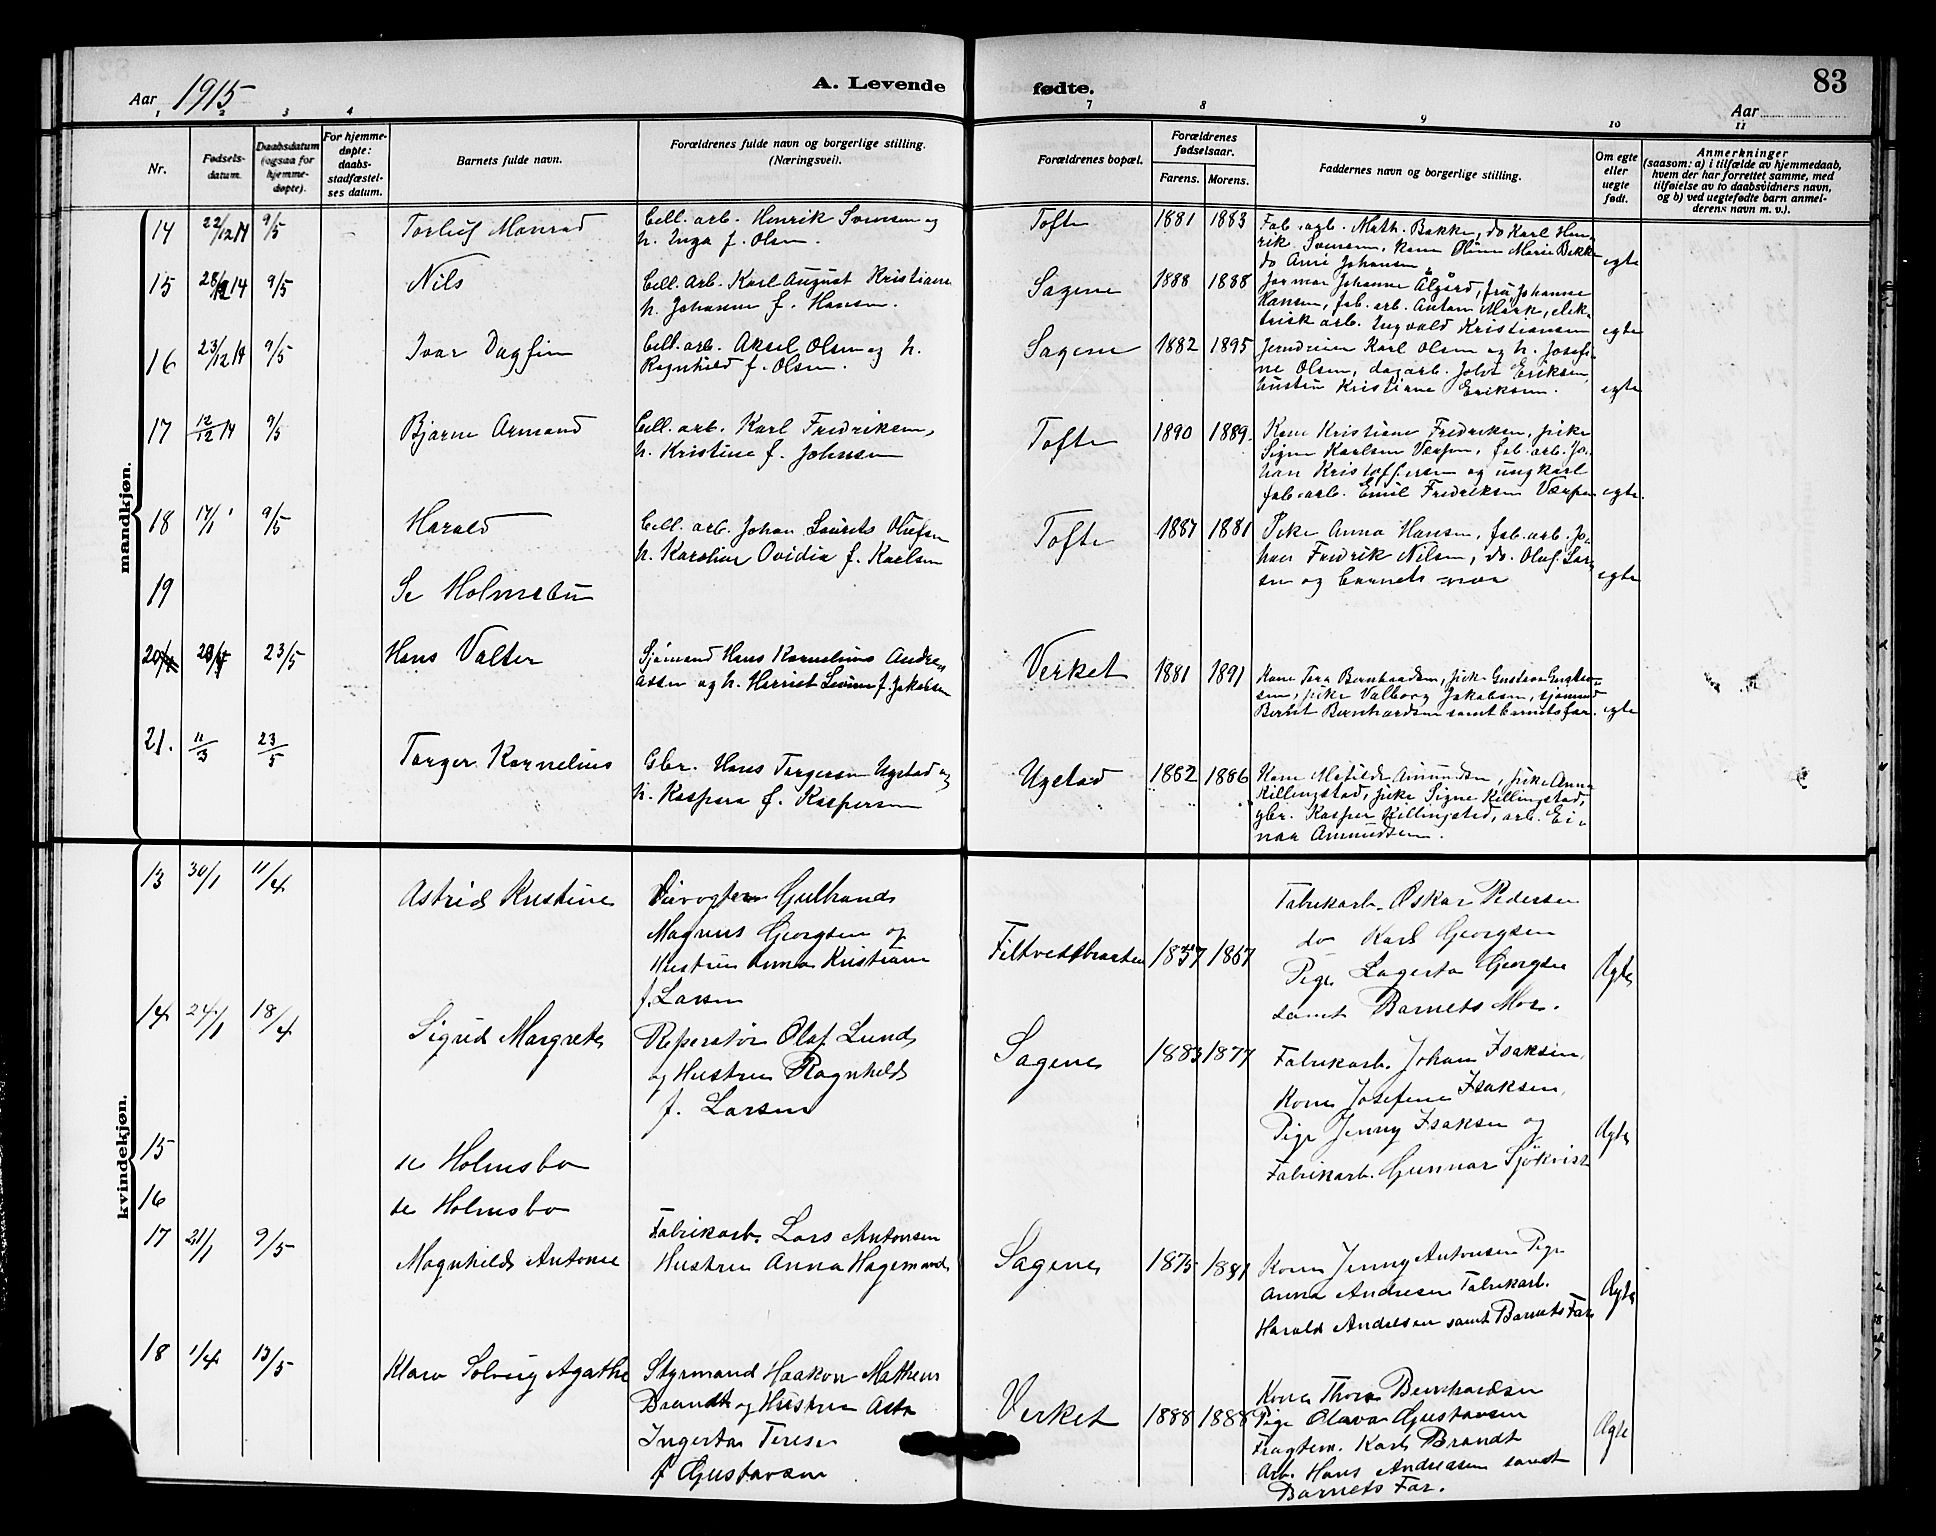 Aar 1915
A. Levende
fødte.
83
Aar
1 2 3 4 7 8 9 10 11
Nr.
Fødsels-
datum.
Daabsdatum
(ogsaa for
hjemme-
døpte).
For hjemme-
døpte:
daabs-
stadfæstel-
ses datum.
Barnets fulde navn.
Forældrenes fulde navn og borgerlige stilling.
(Næringsvei).
Forældrenes bopæl.
Forældrenes
fødselsaar.
Farens. Morens.
Faddernes navn og borgerlige stilling.
Om egte
eller
uegte
født.
Anmerkninger
(saasom: a) i tilfælde av hjemmedaab,
hvem der har forrettet samme, med
tilføielse av to daabsvidners navn,
og b) ved uegtefødte barn anmel-
derens navn m. v.).
mandkjøn.
14 22/12 14 9/5 Torleif Monrad
Cell. arb. Henrik Svensen og
h. Inga f. Olsen.
Tofte 1881 1883
Fab. arb. Math. Bakke, do Karl Hen-
rik Svensen, kone Oline Marie Bakke
do Anne Johansen
egte
15 28/12 14 9/5 Nils
Cell. arb. Karl August Kristians
h. Johanne f. Hansen.
Sagene 1888 1888
Jormor Johanne Ålgård, fru Johanne
Hansen, fab. arb. Anton Mørk, elek-
trisk arb. Ingvald Kristiansen
egte
16 23/12 14 9/5 Ivar Dagfin
Cell. arb. Aksel Olsen og h.
Ragnhild f. Olsen.
Sagene 1882 1895
Jerndreier Karl Olsen og h. Josefi-
ne Olsen, dagarb. Johs Eriksen,
hustru Kristiane Eriksen.
egte
17 12/12 14 9/5 Bjarne Armand
Cell. arb. Karl Fredriksen,
h. Kristine f. Johnsen
Tofte 1890 1889.
Kone Kristiane Fredriksen, pike
Signe Karlsen Værpen, fab. arb. Jo-
han Kristoffersen og ungkarl
fab. arb. Emil Fredriksen Værpen
egte.
18 17/1 9/5 Harald
Cell. arb. Johan Laurits Olufsen
h. Karoline Ovidia f. Karlsen
Tofte 1887 1881
Pike Anna Hansen, fab. arb. Jo-
han Fredrik Nilsen, do. Olaf Lar-
sen og barnets mor
egte
19 Se Holmsbu
20 23/5 Hans Valter
Sjømand Hans Kornelius Andre-
assen og h. Harriet Lovine f. Jakobsen
Verket 1881 1891
Kone Tora Bernhardsen, pike Gustava Gustav-
sen, pike Valborg Jakobsen, sjømand
Berht Bernhardsen samt barnets far.
egte
21. 11/3 23/5 Torger Kornelius
Gbr. Hans Torgersen Ugstad og
h. Kaspara f. Kaspersen
Ugstad 1882 1886
Kone Matilde Amundsen, pike Anna
Killingstad, pike Signe Killingstad,
gbr. Kasper Killingstad, arb. Ei-
nar Amundsen.
kvindekjøn.
13 30/1 11/4 Astrid Kristine
Gulbrand
Magnus Georgsen og
Hustru Anna Kristiane
f. Larsen
Filtvedtbraaten 1857 1867
Fabrikarb. Oskar Pedersen
do Karl Georgsen
Pige Lagerta Georgsen
samt Barnets Mor.
Ægte
14 24/1 18/4 Sigrid Margrete
Reperatør Olaf Lund
og Hustru Ragnhild
f. Larsen
Sagene 1883 1877
Fabrikarb. Johan Isaksen,
Kone Josefine Isaksen,
Pige Jenny Isaksen og
Fabrikarb. Gunnar Sjökvist
Ægte
15 se Holmsbo
16 se Holmsbo
17 21/1 9/5 Magnhild Antonie
Fabrikarb. Lars Antonsen
Hustru Anna Hagemand
Sagene 1875 1881
Kone Jenny Antonsen Pige
Anna Andresen Fabrikarb.
Harald Andresen samt Barnets Far
Ægte
18 1/4 13/5 Klara Solveig Agathe
Styrmand Haakon Matheus
Brandt og Hustru Asta
Ingerta Terese
f Gustavsen
Verket 1888 1888
Kone Thora Bernhardsen
Pige Olava Gustavsen
Fragtem. Karl Brandt
Arb. Hans Andreasen samt
Barnets Far.
Ægte